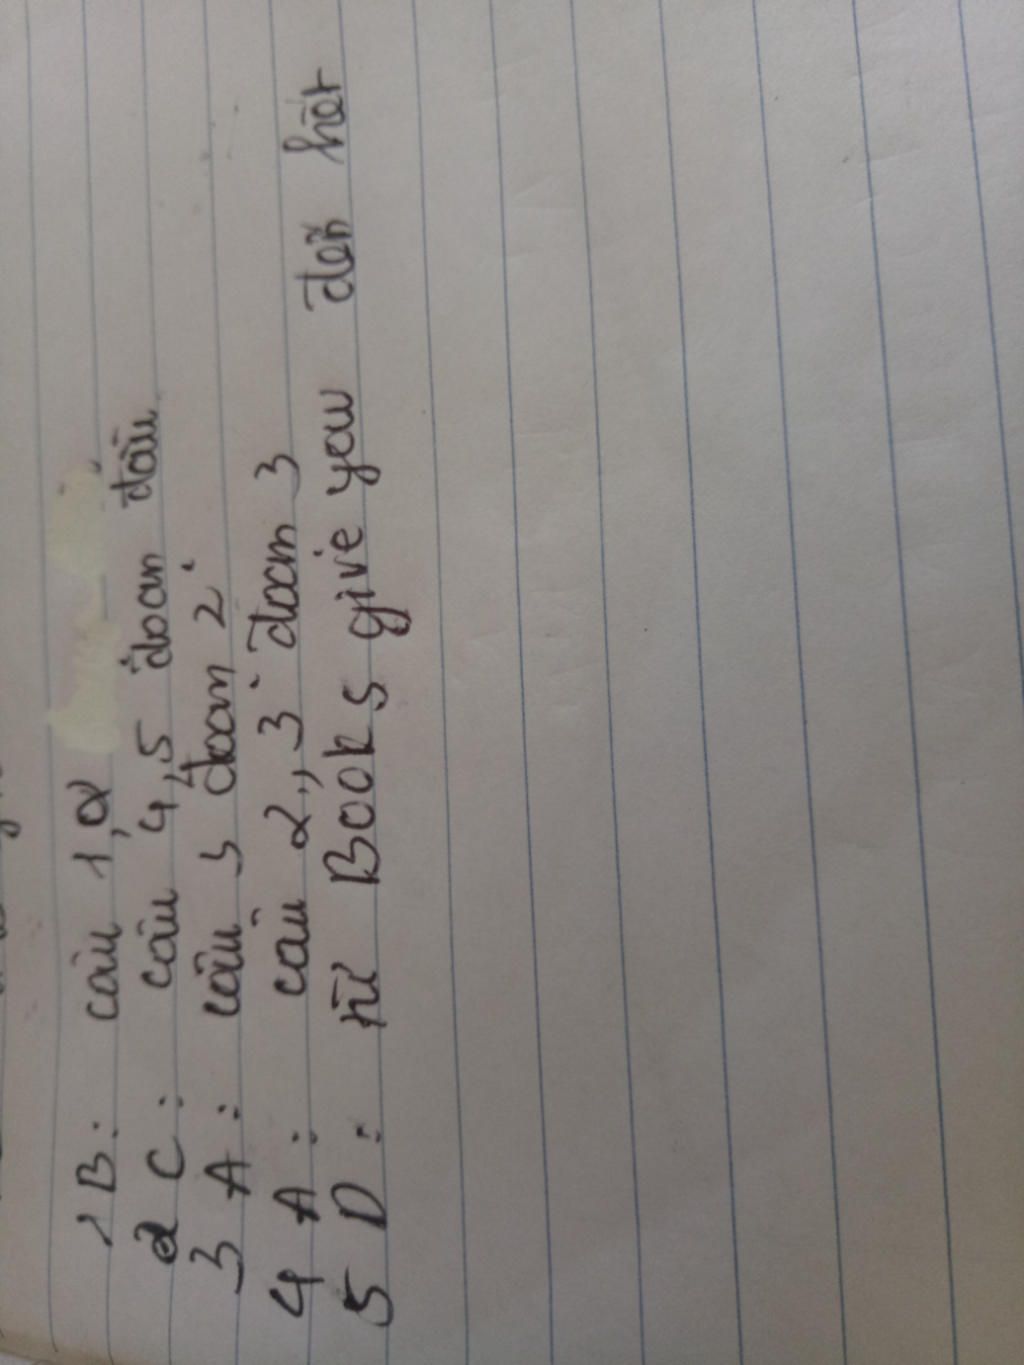 1 B: câu 1, 2
2 C: câu 4, 5 đoạn đầu
3 A: câu 3 đoạn 2
4 A: câu 2, 3 đoạn 3
5 D: từ Books give you đến hết